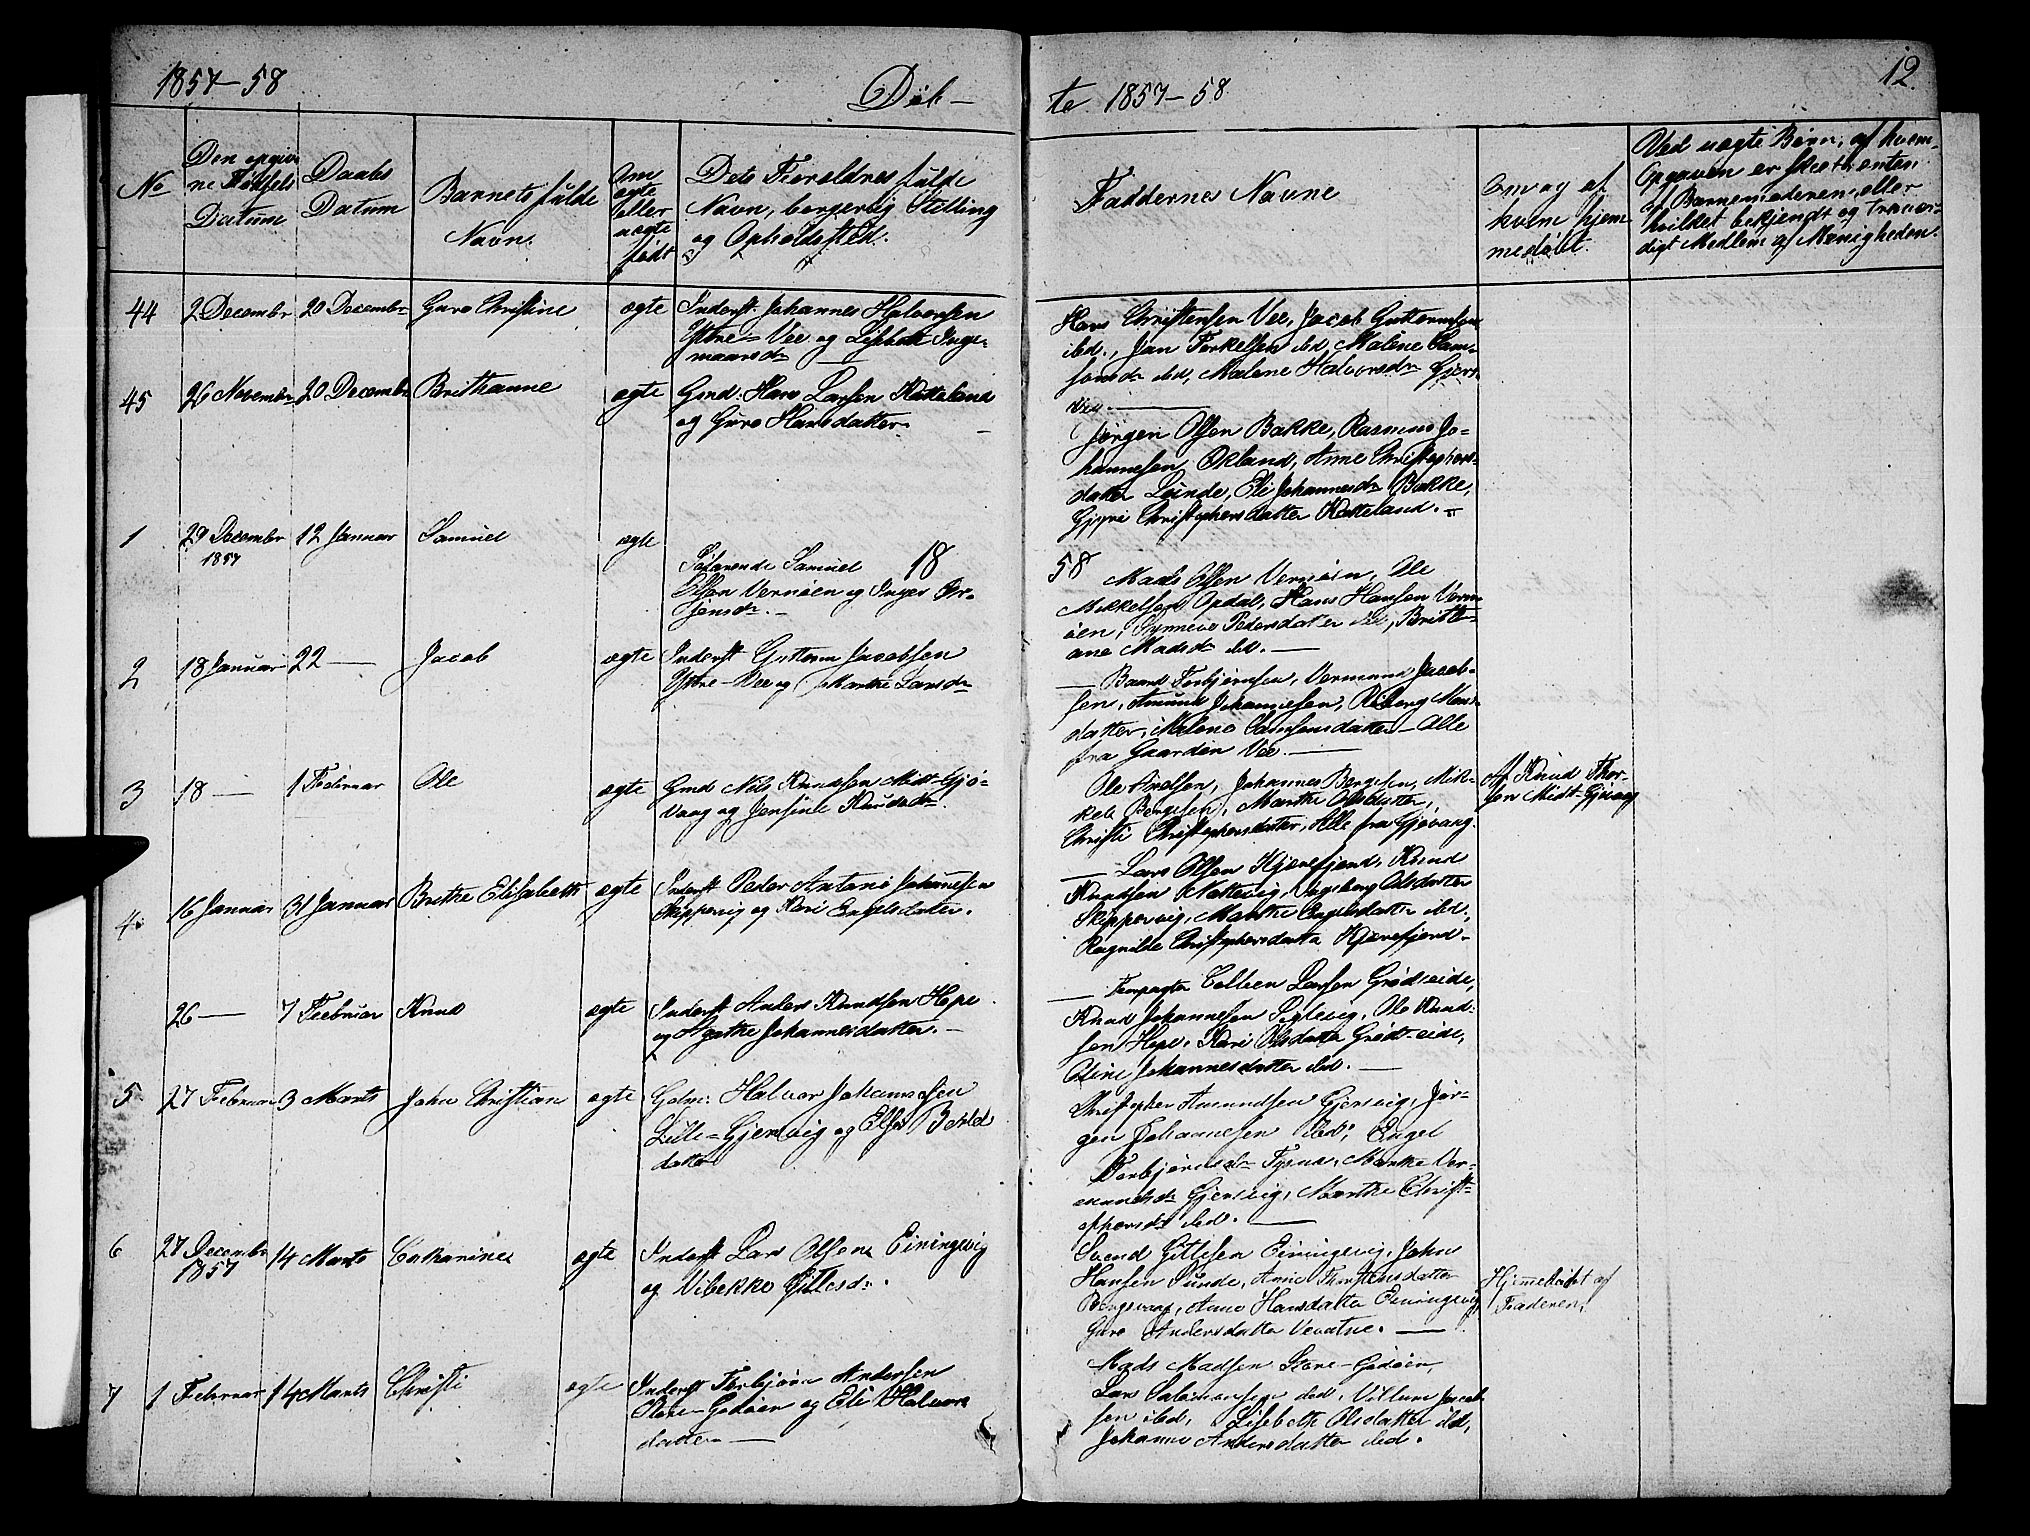 1857-58
Døb-
te 1857-58
12.
No
Den opgiv-
ne Fødsels
Datum
Daabs
Datum
Barnets fulde
Navn.
Om
ægte
eller
uægte
født
Dets Forældres fulde
Navn, borgerlig Stilling
og Opholdssted.
Faddernes Navne
Om og af
hvem hjem
medøbt.
Ved uægte Børn, af hvem
Opgaven er skeet, enten
af Barnemoderen eller
hvilket bekjendt og troevær-
digt Medlem af Menigheden.
44
2 Decembr
20 Decembr
Guro Christine
ægte
Inderst. Johannes Halvorsen
Ytre-Vee og Lisbeth Inge-
maarsdr
Hans Christensen Vee, Jacob Guttormsen
ibd., Jan Torkelsen ibd, Malene Sam-
sonsdr ibd, Malene Halvorsdr
45
26 Novembr
20 Decembr
Brithanne
ægte
Gmd: Hans Larsen Katteland
og Guro Hansdatter.
Jørgen Olsen Bakke, Rasmus Jo-
hannesen Økland, Anne Christophers-
datter Lunde, Eli Johannesdr Bakke,
Christophersdatter Katteland.
18
58
1
29 Decembr
1857
12 Januar
Samuel
ægte
Samuel
Olsen Vernøen og Inger Ør-
jensdr.
Mads Olsen Vernøen, Ole
Mikkelsen Opdal, Hans Hansen Vern-
øen, Synneve Pedersdatter ibd, Britte-
ane Madsdr ibd.
2
18 Januar
22 —
Jacob
ægte
Inderst Guttorm Jacobsen
Ytre-Vee og Marthe Larsdr
Baard Torbjørnsen, Vermund Jacob-
sen, Amund Johannesen,
datter, Malene Samsonsdatter - Alle
fra Gaarden Vee.
3
18 —
1 Februar
Ole
ægte
Gmd Nils Knudsen Midt-Gjø-
vaag og Jensine Knudsdr.
Ole Johannes Bergesen, Mik-
kel Bergesen, Marthe Olsdatter,
Christi Christophersdatter, Alle fra Gjøvaag.
Af Knud Thor-
sen Midt-Gjøvaag
4.
16 Januar
31 Januar
Brithe Elisabeth
ægte
Inderst Peder Antoni Johannesen
Skippervig og Kari Engelsdatter.
Lars Olsen Hjørnefjord, Knud
Knudsen Nottevig, Ingeborg Olsdatter
Skippervig, Marthe Engelsdatter ibd.,
Ragnilde Christophersdatter
26 —
7 Februar
Knud
ægte
Inderst Anders Knudsen Hope
og Agathe Johannesdatter.
Larsen Grødseide,
Knud Johannesen Ole Knud-
sen Hope, Kari Olsdatter Grødseide,
Oline Johannesdatter ibd.
5
27 Februar
3 Marts
John Christian
ægte
Halvor Johannesen
Lille-Gjersvig og Else
datter
Christopher Amundsen Gjersvig, Jør-
gen Johannesen ibd, Engel
Torbjørnsdr Tysnæs, Marthe Ver-
mundsdr Gjersvig, Marthe Christ-
ophersdr ibd.
6
27 Decembr
1857
14 Marts
Catharine
ægte
Inderst Lars Olsen Einingevig
og Vibekke Gitlesdr.
Svend Gitlesen Einingevig, John
Hansen Sunde, Anne Thorstensdatter
Anne Hansdatter Einingevig
Guro Andersdatter Vevatne.
Hjemedøbt af
Faderen.
7
1 Februar
14 Marts
Christi
ægte
Inderst Torbjørn Andersen
Store-Godøen og Eli Halvors
datter
Mads Madsen Store-Godøen
Lars Salomonsen ibd, Villum Jacob-
sen ibd, Lisbeth Olsdatter ibd,
Johanne Andersdatter ibd.